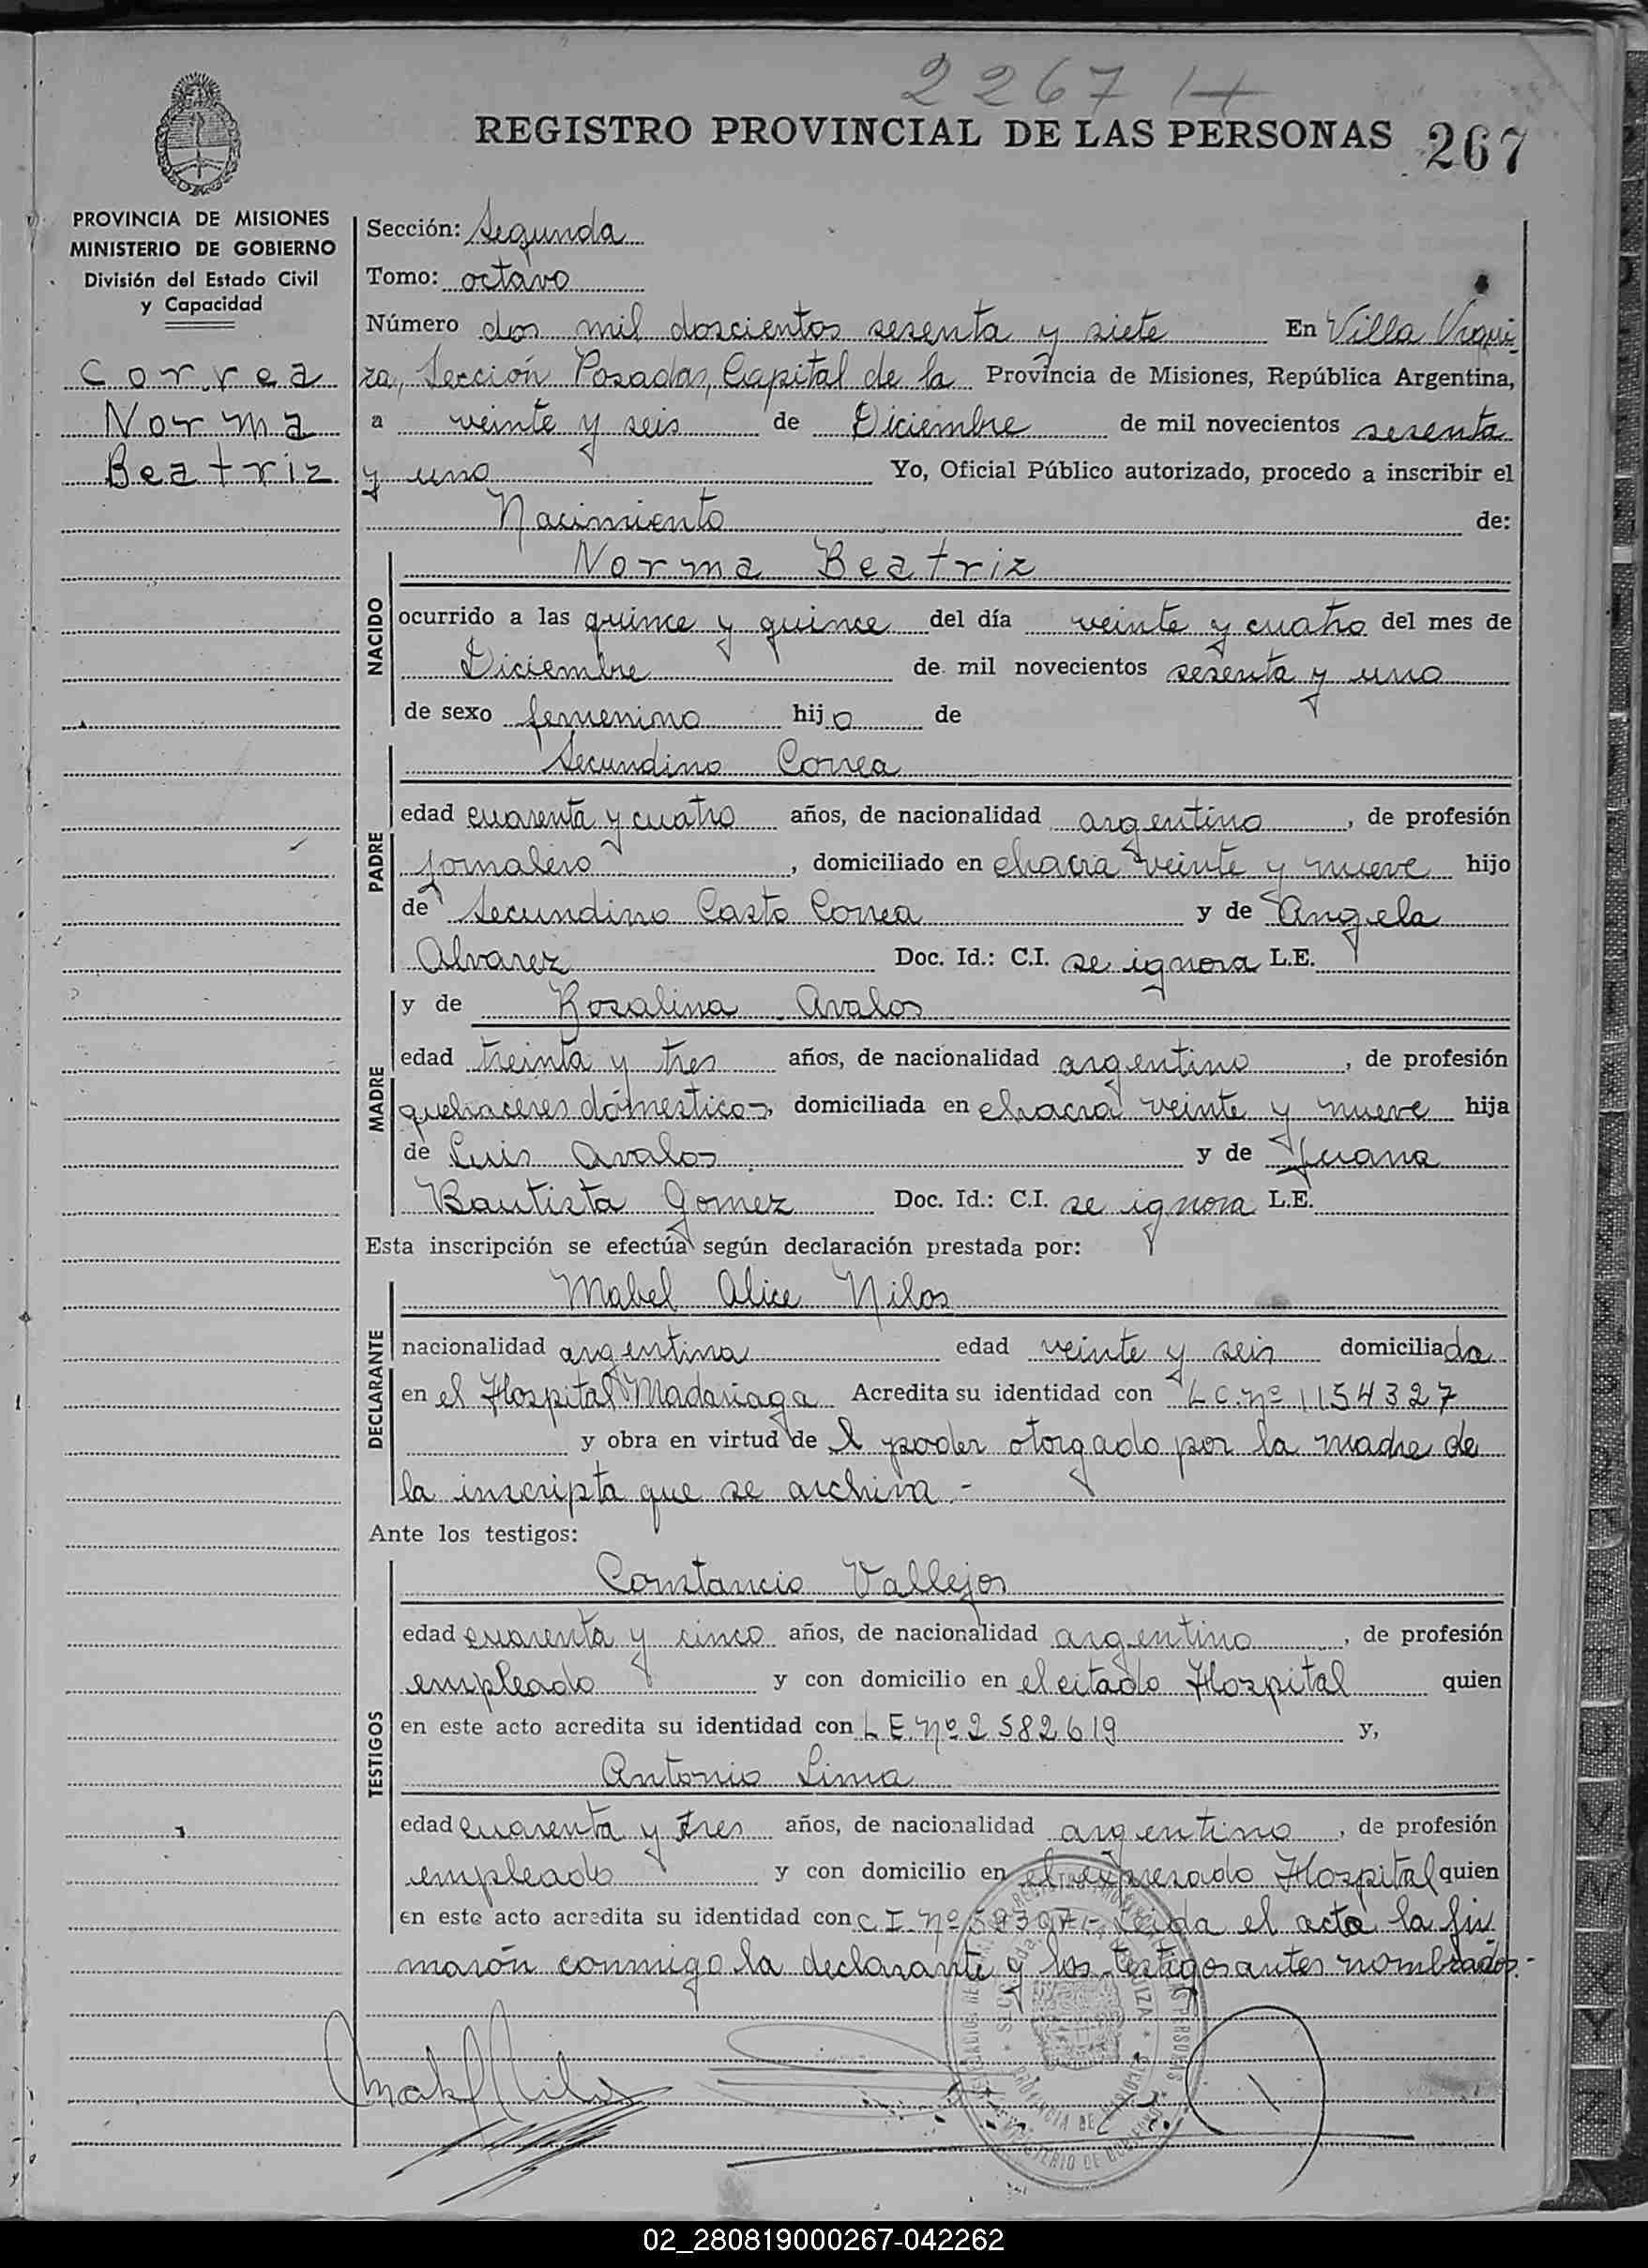 2267 H
REGISTRO PROVINCIAL DE LAS PERSONAS 267
PROVINCIA DE MISIONES
MINISTERIO DE GOBIERNO
División del Estado Civil
y Capacidad
Correa
Norma
Beatriz
Sección: Segunda
Tomo: octavo
Número dos mil doscientos sesenta y siete En Villa Urqui-
za, Sección Posadas, Capital de la Provincia de Misiones, República Argentina,
a veinte y seis de Diciembre de mil novecientos sesenta
y uno Yo, Oficial Público autorizado, procedo a inscribir el
Nacimiento de:
NACIDO
Norma Beatriz
ocurrido a las quince y quince del día veinte y cuatro del mes de
Diciembre de mil novecientos sesenta y uno
de sexo femenino hijo de
PADRE
Secundino Correa
edad cuarenta y cuatro años, de nacionalidad argentino, de profesión
jornalero, domiciliado en chacra veinte y nueve hijo
de Secundino Casto Correa y de Angela
Alvarez Doc. Id.: C.I. se ignora L.E.
MADRE
y de Rosalina Avalos
edad treinta y tres años, de nacionalidad argentino, de profesión
quehaceres domésticos, domiciliada en chacra veinte y nueve hija
de Luis Avalos y de Juana
Bautista Gomez Doc. Id.: C.I. se ignora L.E.
Esta inscripción se efectúa según declaración prestada por:
DECLARANTE
Mabel Alice Nilos
nacionalidad argentina edad veinte y seis domiciliada
en el Hospital Madariaga Acredita su identidad con L C. Nº 1154327
y obra en virtud de l poder otorgado por la madre de
la inscripta que se archiva.-
Ante los testigos:
TESTIGOS
Constancio Vallejos
edad cuarenta y cinco años, de nacionalidad argentino, de profesión
empleado y con domicilio en el citado Hospital quien
en este acto acredita su identidad con L E. Nº 2582619 y,
Antonio Lima
edad cuarenta y tres años, de nacionalidad argentino, de profesión
empleado y con domicilio en el expresado Hospital quien
en este acto acredita su identidad con C. I. Nº Leida el acta la fir
marón conmigo la declarante y los testigos antes nombrados.-
02_280819000267-042262